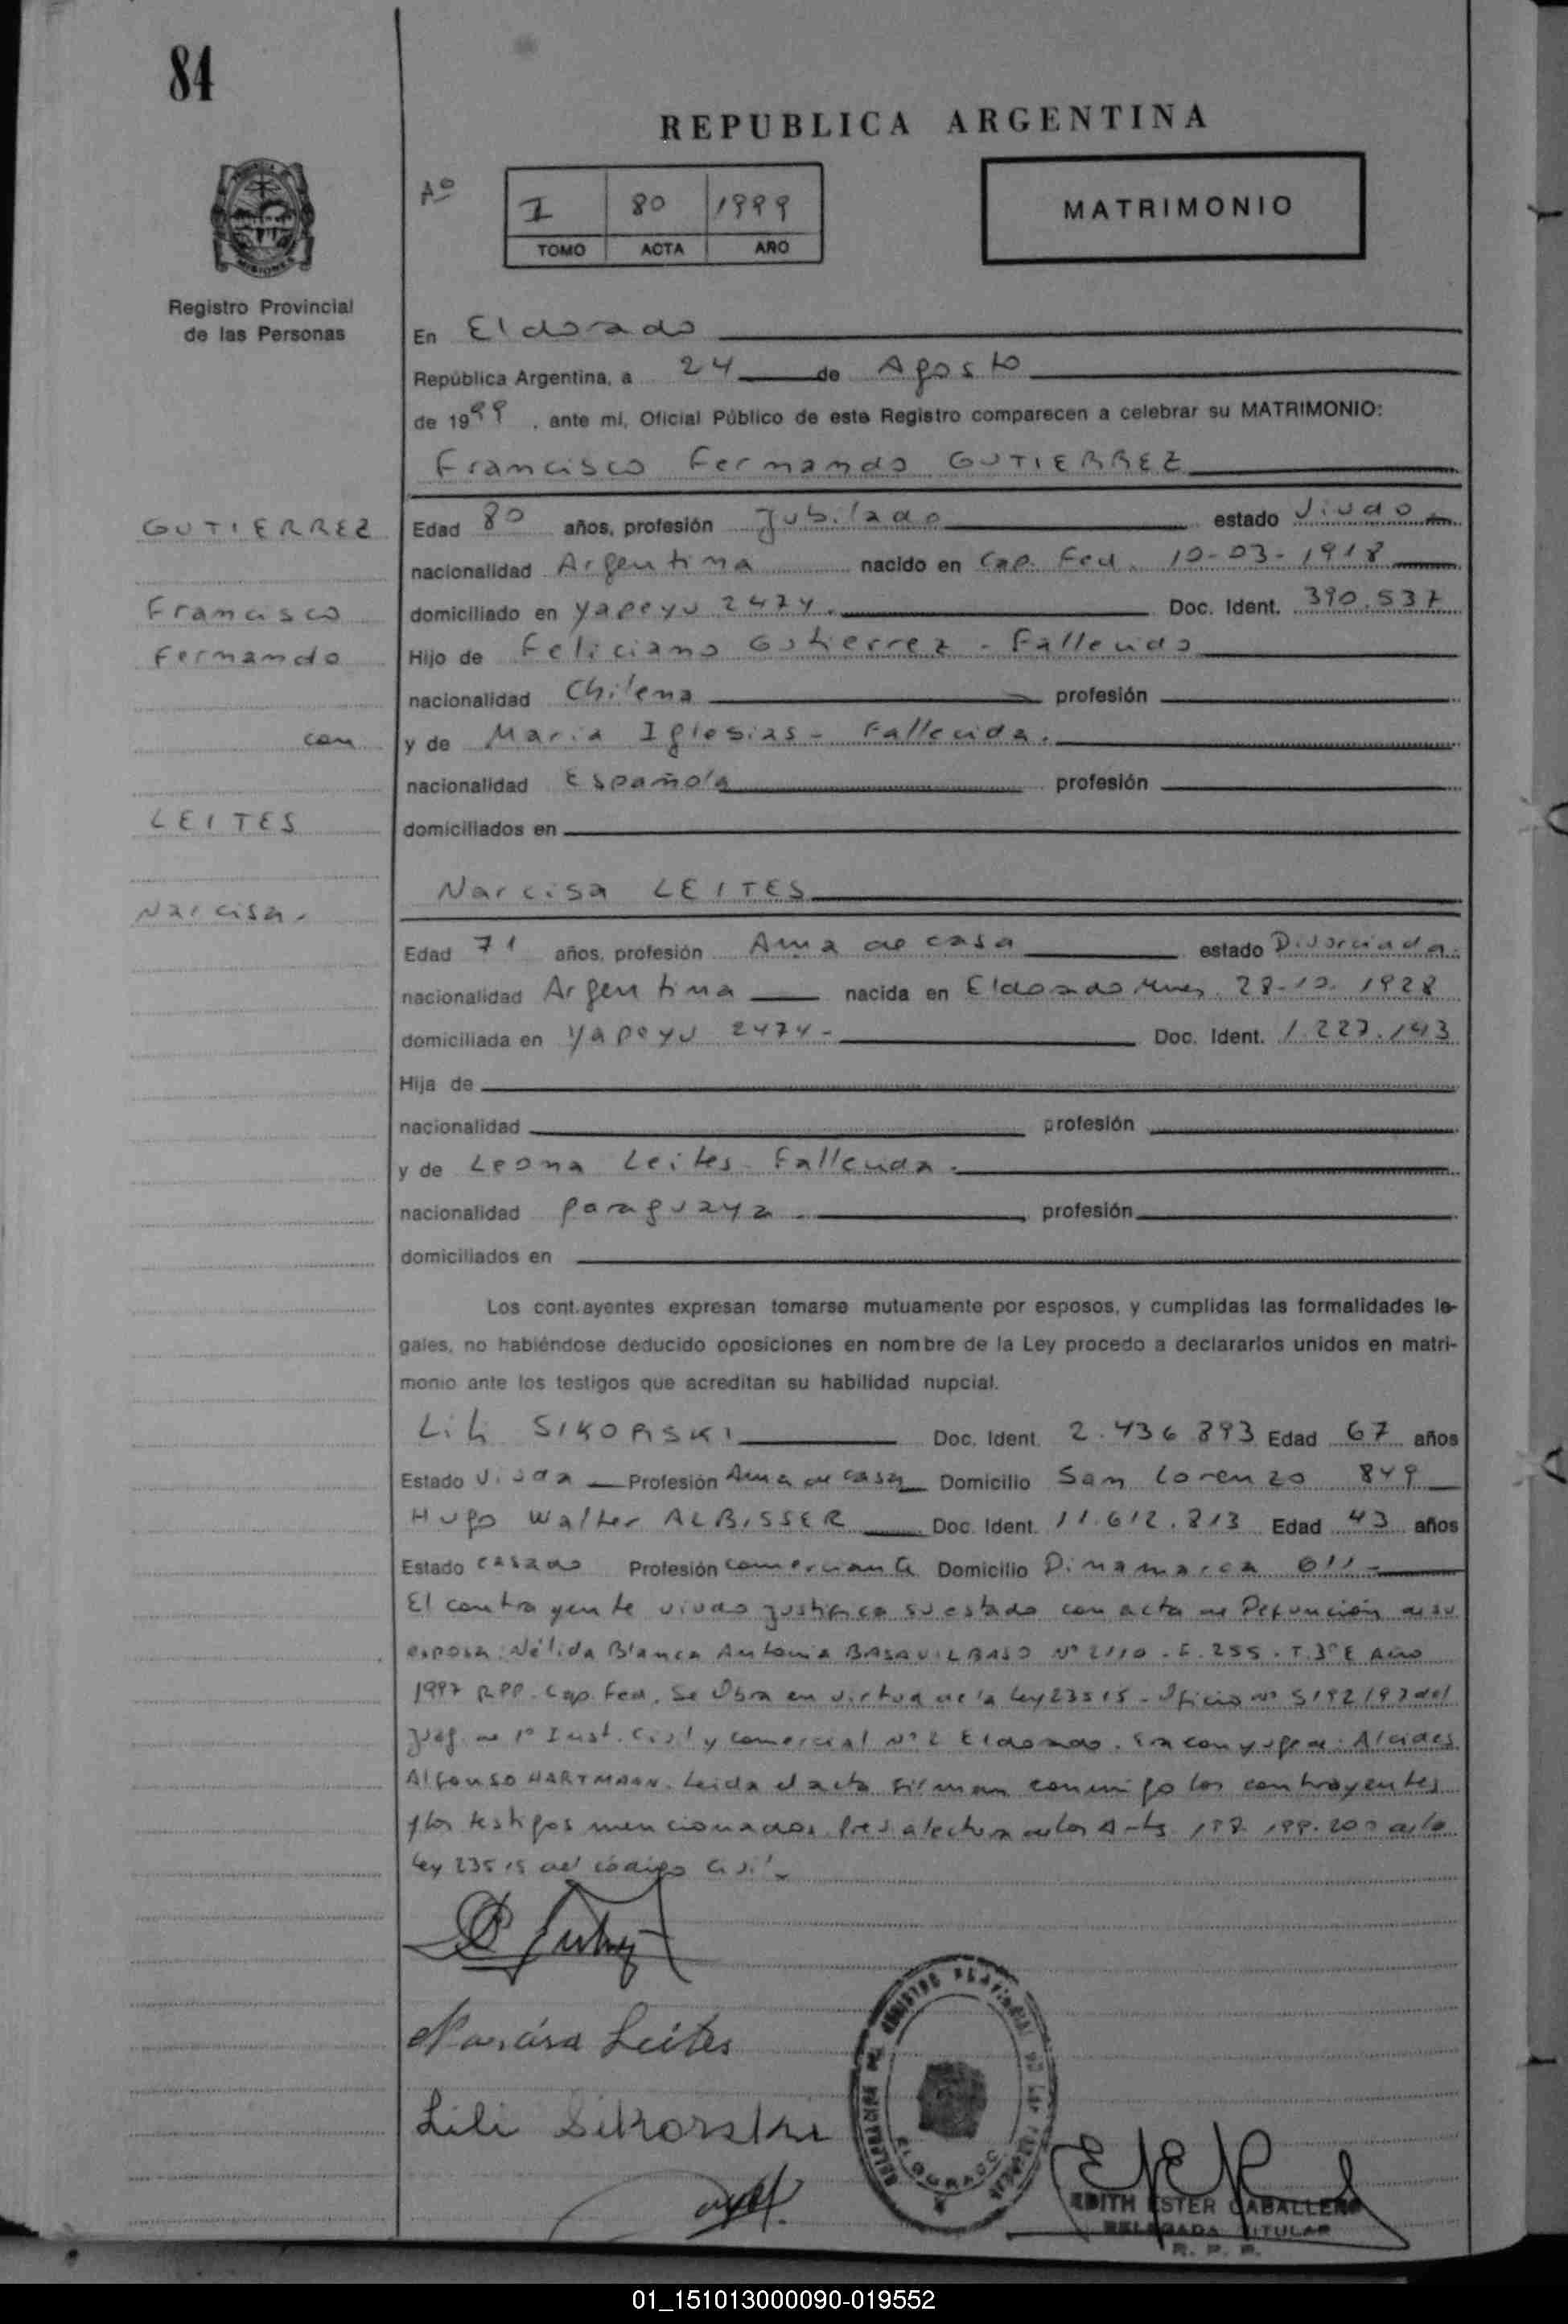 84
REPUBLICA ARGENTINA
Aº
I 80 1999
TOMO ACTA AÑO
MATRIMONIO
MISIONES
Registro Provincial
de las Personas
En Eldorado
República Argentina, a 24 de Agosto
de 1999, ante mí, Oficial Público de este Registro comparecen a celebrar su MATRIMONIO:
Francisco Fernando GUTIERREZ
GUTIERREZ
Francisco
Fernando
con
LEITES
Narcisa.
Edad 80 años, profesión Jubilado estado Viudo
nacionalidad Argentina nacido en Cap. Fed. 10-03-1918
domiciliado en Yapeyu 2474. Doc. Ident. 390.537
Hijo de Feliciano Gutierrez - Fallecido
nacionalidad Chilena profesión
y de Maria Iglesias - Fallecida.
nacionalidad Española profesión
domiciliados en
Narcisa LEITES
Edad 71 años, profesión Ama de casa estado Divorciada.
nacionalidad Argentina nacida en Eldorado Mnes. 28-10-1928
domiciliada en Yapeyu 2474- Doc. Ident. 1.227.143
Hija de
nacionalidad profesión
y de Leona Leites - Fallecida.
nacionalidad paraguaya profesión
domiciliados en
Los cont.ayentes expresan tomarse mutuamente por esposos, y cumplidas las formalidades le-
gales, no habiéndose deducido oposiciones en nombre de la Ley procedo a declararlos unidos en matri-
monio ante los testigos que acreditan su habilidad nupcial.
Lili SIKORSKI Doc. Ident. 2.436.893 Edad 67 años
Estado Viuda Profesión Ama de casa Domicilio San Lorenzo 849
Hugo Walter ALBISSER Doc. Ident. 11.612.813 Edad 43 años
Estado casado Profesión comerciante Domicilio Dinamarca 611-
El contrayente viudo justifica su estado con acta de Defunción de su
esposa: Nélida Blanca Antonia BASAVILBASO Nº 2110 - F. 255 - T. 3º E Año
1997 RPP. Cap. Fed. Se Obra en virtud de la Ley 23515 - Oficio Nº 5192/97 del
Juzg. de 1º Inst. Civil y comercial Nº 2 Eldorado. Ex conyuge de: Alcides
Alfonso HARTMANN. Leida el acta firman conmigo los contrayentes
y los testigos mencionados. Previa lectura de los Arts. 198. 199. 200 de la
Ley 23515 del código Civil-
Narcisa Leites
Lili Sikorski
DELEGACION DEL REGISTRO PROVINCIAL DE LAS PERSONAS
ELDORADO
EDITH ESTER CABALLERO
DELEGADA TITULAR
R. P. P.
01_151013000090-019552